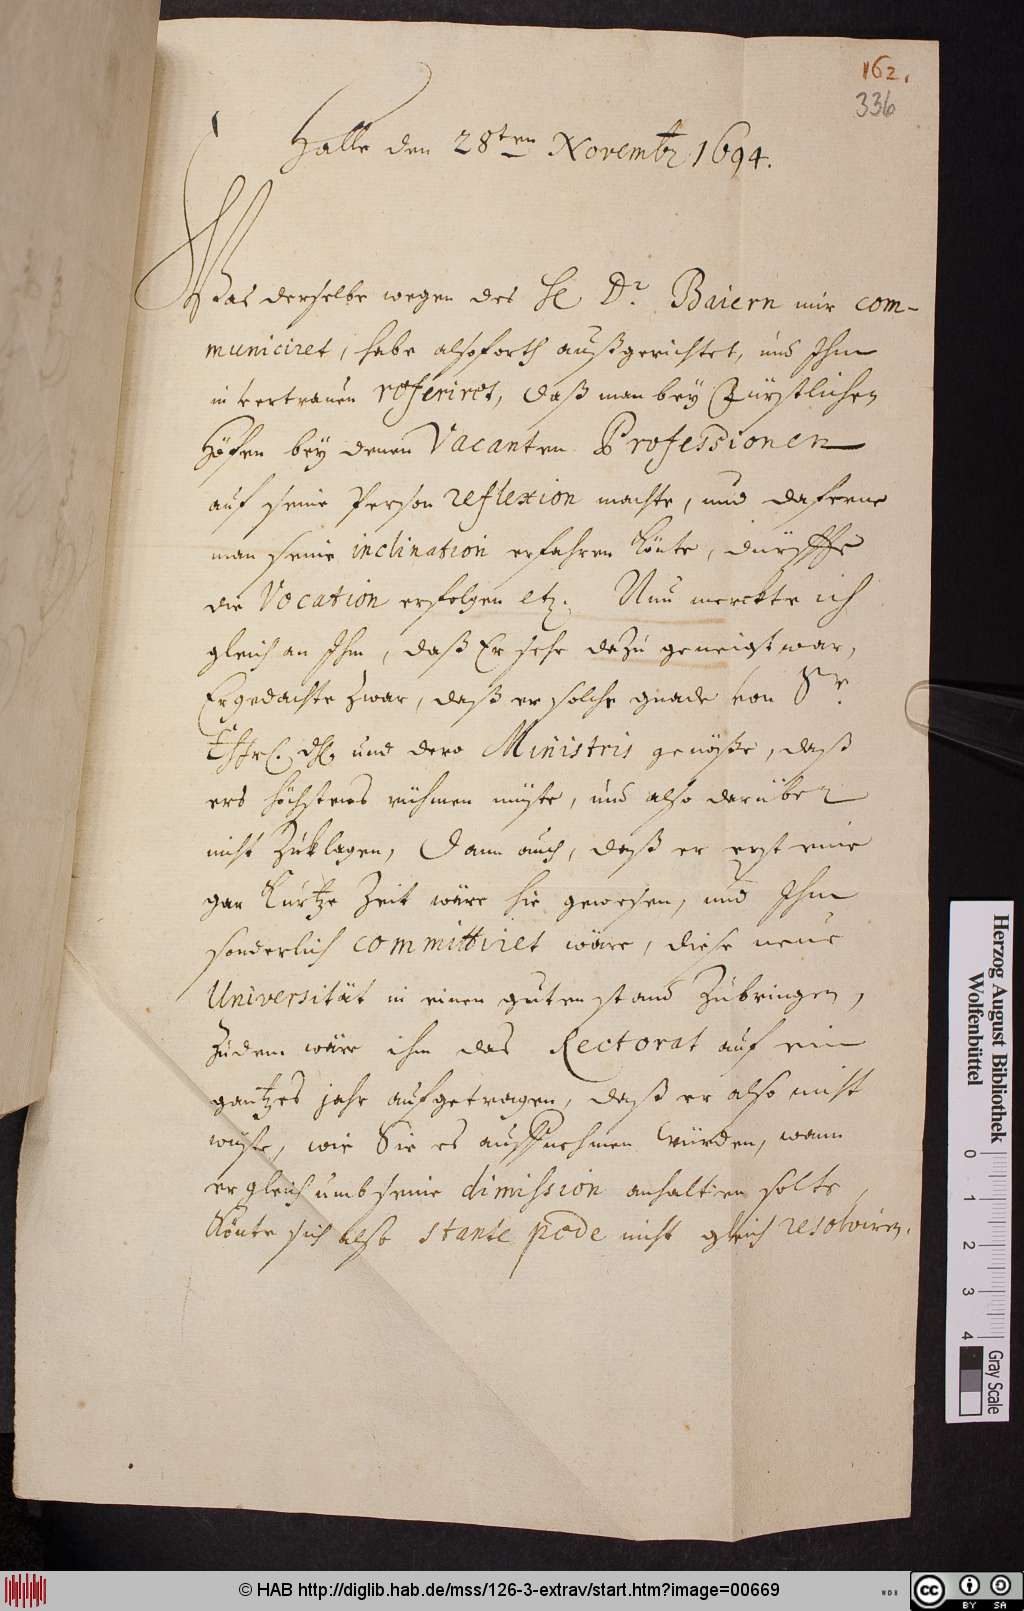 162.
336
Halle den 28ten Novembr 1694.
Was derselbe wegen des H D.r Baiern mir com-
municiret, habe alsoforth außgerichtet, und Ihm
in vertrauen referiret, daß man bey Fürstlichen
Höfen bey denen Vacanten Professionen
auf seine Person reflexion machte, und daferne
man seine inclination erfahren könte, dürffte
die Vocation erfolgen etz. Nun merckte ich
gleich an Ihm, daß Er sehr dazu geneigt war,
Er gedachte zwar, daß er solche gnade von Sr
Churfl. dhl. und dero Ministris genöße, daß
ers höchstens rühmen müste, und also darüber
nicht zu klagen, Dann auch, daß er erst eine
gar kurtze Zeit wäre hie gewesen, und Ihm
sonderlich committiret wäre, diese neue
Universität in einen guten stand zubringen,
zudem wäre ihm das Rectorat auf ein
gantzes jahr aufgetragen, daß er also nicht
wüste, wie Sie es auffnehmen würden, wann
er gleich umb seine dimission anhalten solte,
könte sich also stante pede nicht gleich resolviren.
Herzog August Bibliothek
Wolfenbüttel
0 1 2 3 4
Gray Scale
© HAB http://diglib.hab.de/mss/126-3-extrav/start.htm?image=00669
WDB
cc
BY SA